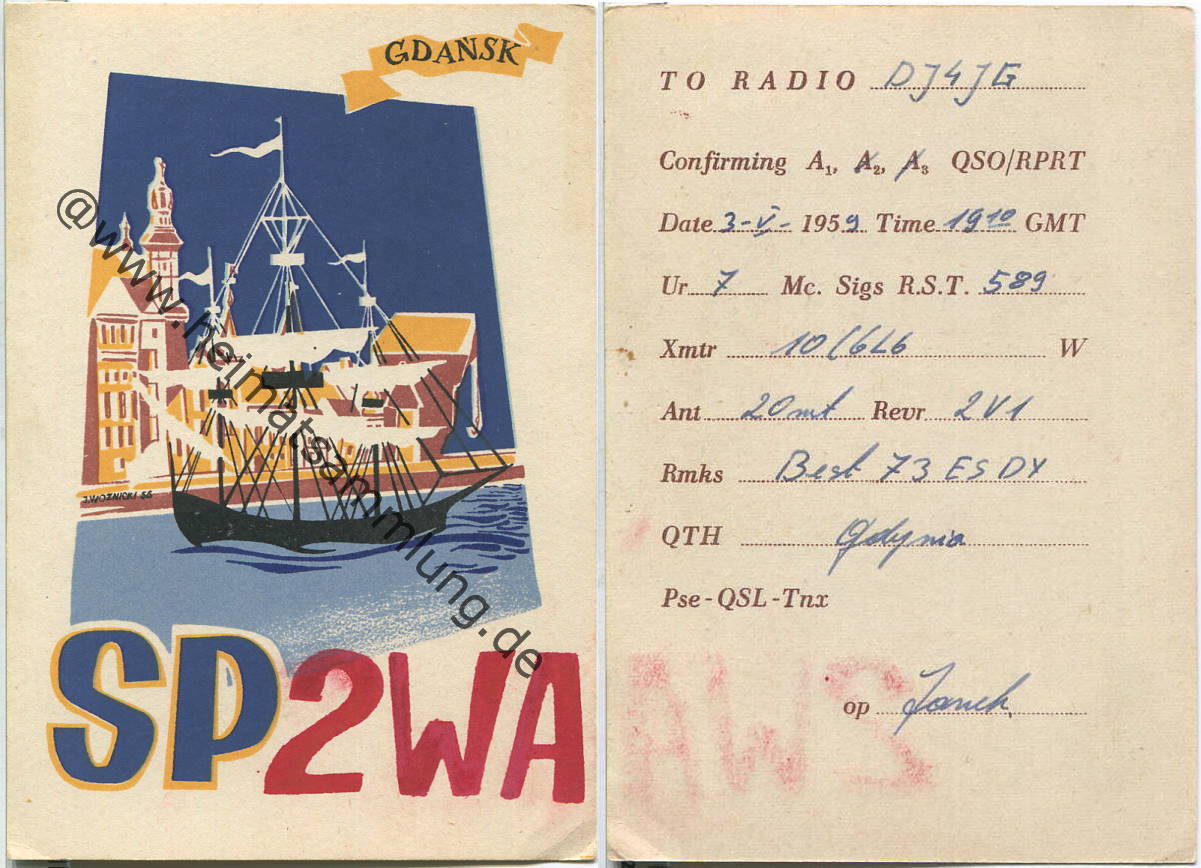 GDAŃSK
@www.heimatsammlung.de
J.WOŹNICKI 56
SP2WA
TO RADIO DJ4JG
Confirming A1, A2, A3 QSO/RPRT
Date 3-V- 1959 Time 19 10 GMT
Ur 7 Mc. Sigs R.S.T. 589
Xmtr 10/6L6 W
Ant 20mt Revr 2V1
Rmks Best 73 ES DX
QTH Gdynia
Pse-QSL-Tnx
op Janek